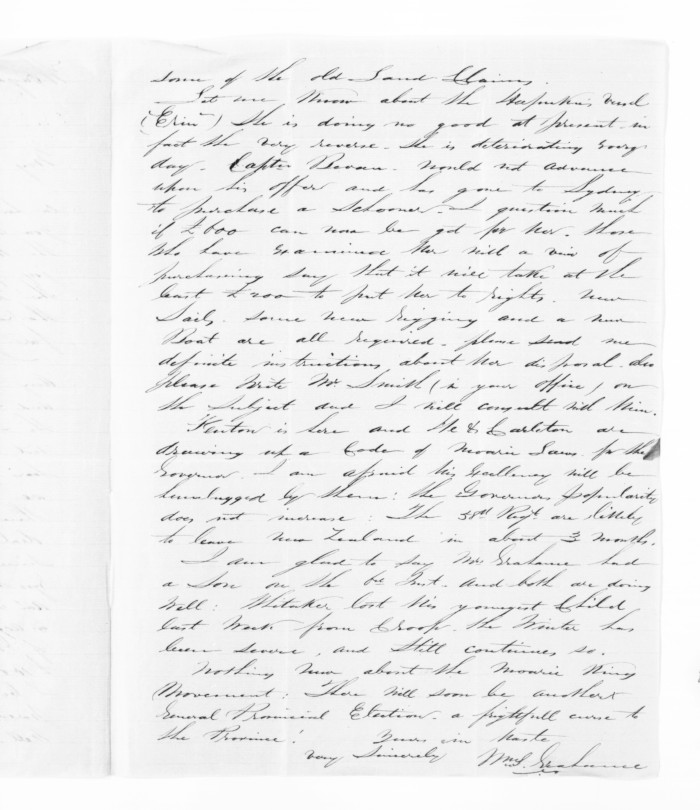 some of the old Land Claims.
Let me Know about the Hapuku's Vessel
("Erin") She is doing no good at present. in
fact the very reverse. She is deteriorating every
day. Captn would not advance
upon his offer and has gone to Sydney
to purchase a Schooner. I question much
if £600 can now be got for her. those
who have examined her with a view of
purchasing say that it will take at the
least £200 to put her to rights. new
Sails. Some new rigging and a new
Boat are all required. please send me
definite instructions about her disposal. also
please write Mr Smith (in your office) on
the subject and I will consult with him.
Fenton is here and He & Carleton are
drawing up a Code of Moarie Laws for the
Governor. I am afraid his Excellency will be
humbugged by them: the Governors popularity
does not increase: The 58th Regt. are likely
to leave New Zealand in about 3 months.
I am glad to say Mrs Grahame had
a Son on the 6th Inst. and both are doing
well: Whitaker lost his youngest Child
last week from Croop. the Winter has
been severe, and still continues so.
Nothing new about the Moarie King
Movement: There will soon be another
General Provincial Election. a frightfull curse to
the Province! Yours in haste
very Sincerely Wm S. Grahame